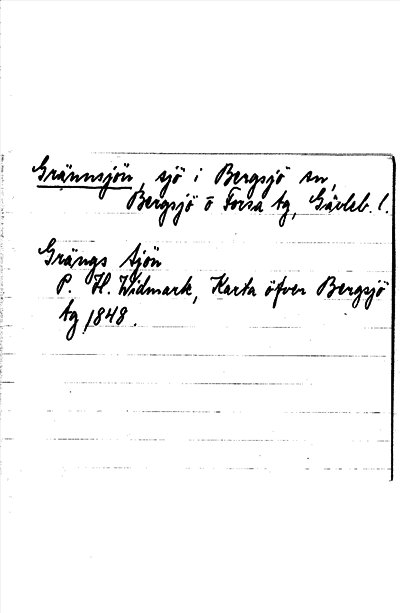 Grännsjön, sjö i Bergsjö sn,
Bergsjö o Forsa tg, Gävleb. l.
Grängs tjön
P. H. Widmark, Karta öfver Bergsjö
tg 1848.